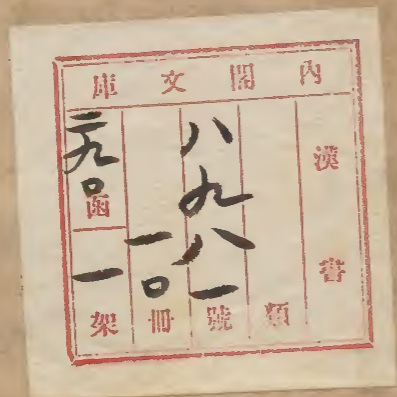 內閣文庫
漢書
類
八九八一號
一〇冊
二九〇函
一架